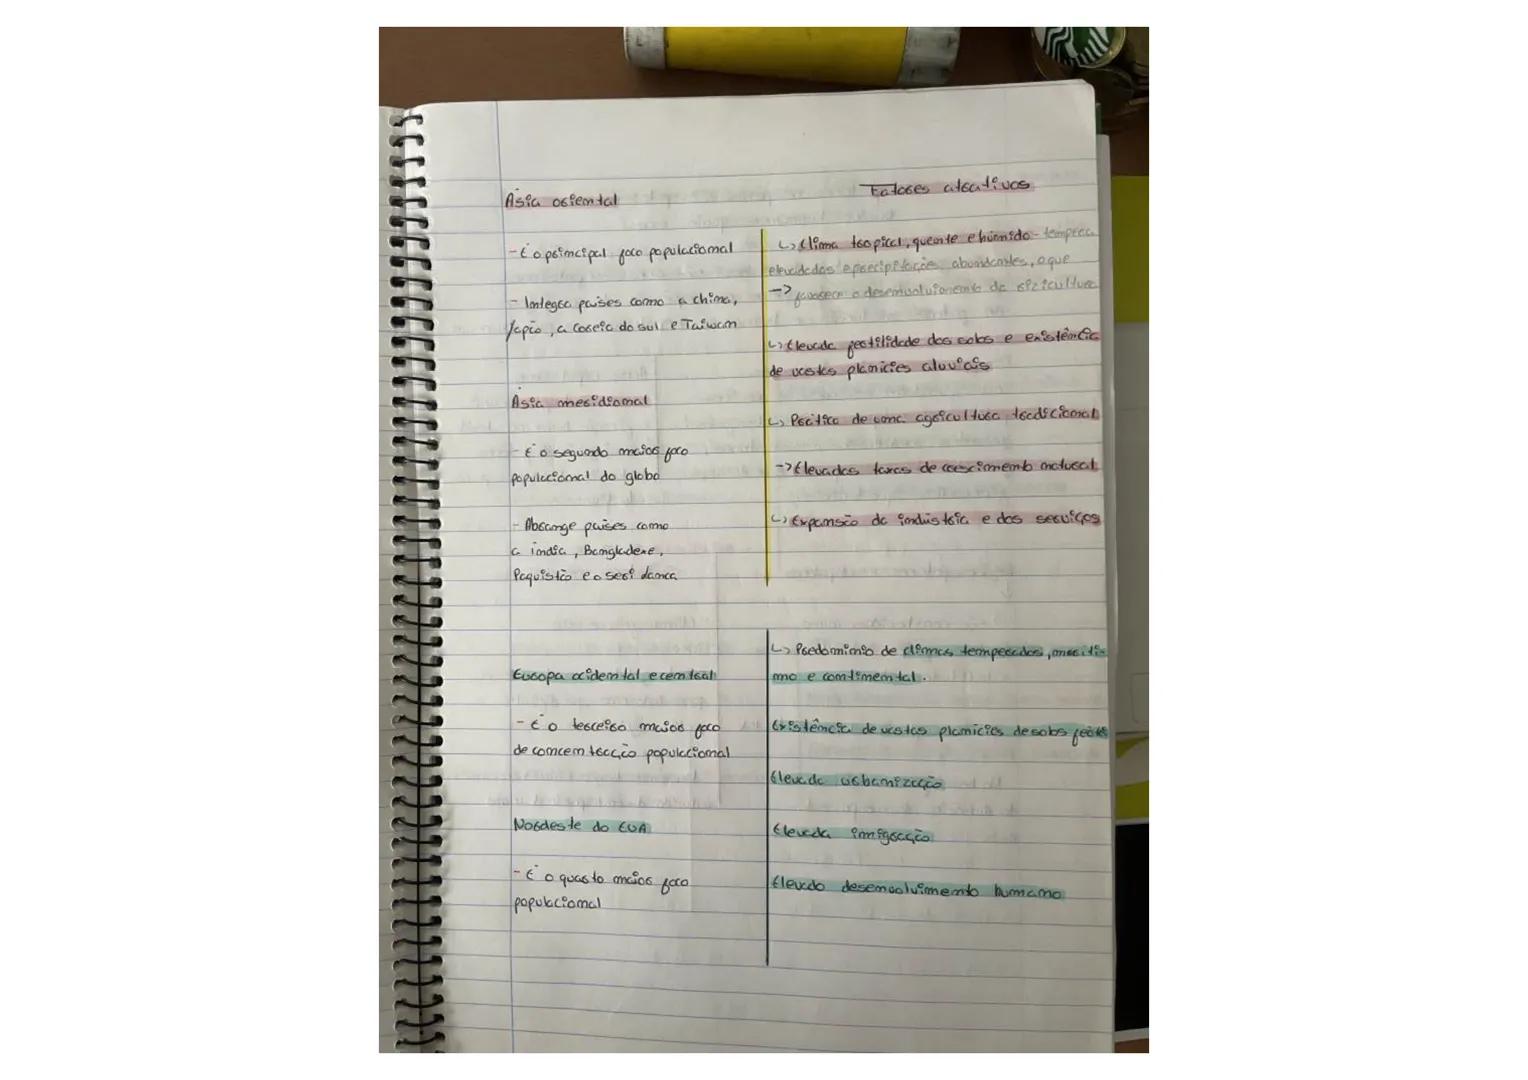 Ásia oriental
- É o principal foco populacional
- Integra países como a china,
Japão, a coreia do sul e Taiwan
Ásia meridional
- É o segundo maior foco
populacional do globo
- Abrange países como
a índia, Bangladexe,
Paquistão e o seri danca
Fatores atrativos
↳ Clima tropical, quente e húmido - tempera
elevadadas e precipitações abundantes, o que
-> favorece o desenvolvimento da rizicultura
↳ Elevada fertilidade dos solos e existência
de vastas planícies aluviais
↳ Prática de uma agricultura tradicional
-> Elevadas taxas de crescimento natural
↳ Expansão da indústria e dos serviços
Europa ocidental e central
- É o terceiro maior foco
de concentração populacional
Nordeste do EUA
- É o quarto maior foco
populacional
↳ Predomínio de climas temperados, maríti-
mo e continental.
Existência de vastas planícies de solos férteis
Elevada urbanização
Elevada imigração
Elevado desenvolvimento humano